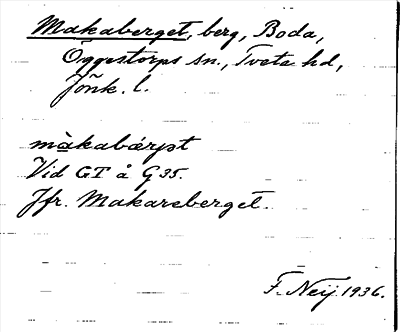 Makaberget, berg, Boda,
Öggestorps sn., Tveta hd,
Jönk. l.
màkabárjət
Vid GT å G 35.
Jfr. Makareberget.
F. Neij. 1936.